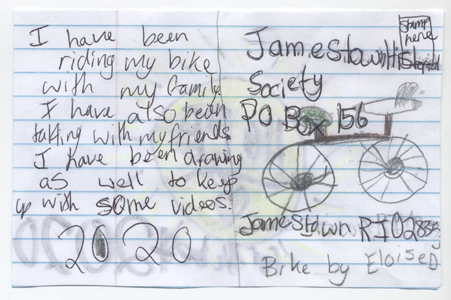 I have been
riding my bike
with my family
I have also been
talking with my friends
I have been drawing
as well to keep
up with some videos.
2020
Stamp
here
Jamestown Hist
Society
PO Box 156
Jamestown, RI 02835
Bike by Eloise D